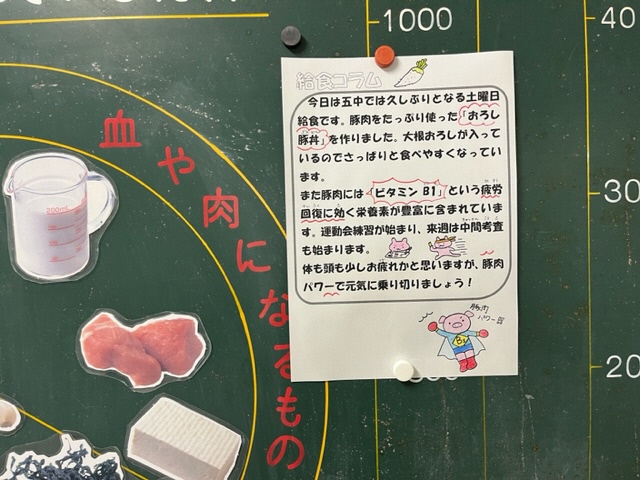 1000
40
30
20
血や肉になるもの
300mL
給食コラム
今日は五中では久しぶりとなる土曜日
給食です。豚肉をたっぷり使った「おろし
豚丼」を作りました。大根おろしが入って
いるのでさっぱりと食べやすくなってい
ます。
また豚肉には「ビタミンB1」という疲労
回復に効く栄養素が豊富に含まれていま
す。運動会練習が始まり、来週は中間考査
も始まります。
体も頭も少しお疲れかと思いますが、豚肉
パワーで元気に乗り切りましょう！
豚肉
パワー
B1